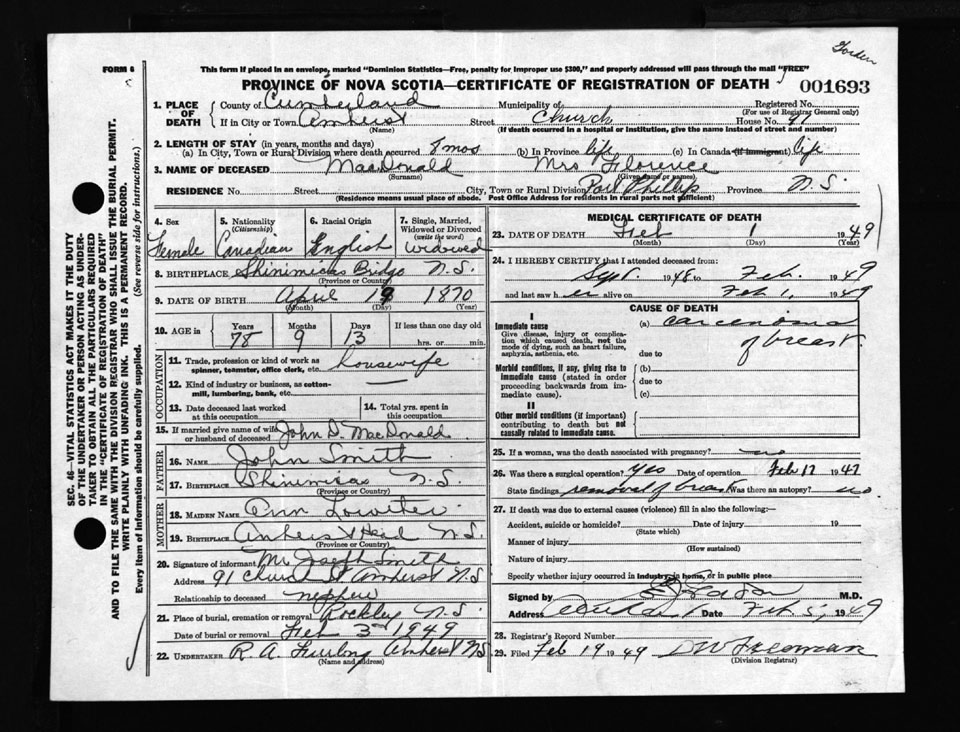 FORM 6
This form if placed in an envelope, marked "Dominion Statistics—Free, penalty for improper use $300," and properly addressed will pass through the mail "FREE"
PROVINCE OF NOVA SCOTIA—CERTIFICATE OF REGISTRATION OF DEATH
001693
1. PLACE OF DEATH
County of Cumberland Municipality of Registered No.
(For use of Registrar General only)
If in City or Town Amherst Street Church House No. 91
(Name) (If death occurred in a hospital or institution, give the name instead of street and number)
2. LENGTH OF STAY (in years, months and days)
(a) In City, Town or Rural Division where death occurred 8 mos (b) In Province life (c) In Canada (if immigrant) life
3. NAME OF DECEASED MacDonald Mrs Florence
(Surname) (Given name or names)
RESIDENCE No. Street City, Town or Rural Division Port Phillip Province N.S.
(Residence means usual place of abode. Post Office Address for residents in rural parts not sufficient)
4. Sex 5. Nationality (Citizenship) 6. Racial Origin 7. Single, Married, Widowed or Divorced (write the word)
Female Canadian English Widowed
8. BIRTHPLACE Shinimicas Bridge N.S.
(Province or Country)
9. DATE OF BIRTH April 19 1870
(Month) (Day) (Year)
10. AGE in Years Months Days If less than one day old
78 9 13 hrs. or min.
OCCUPATION
11. Trade, profession or kind of work as spinner, teamster, office clerk, etc. housewife
12. Kind of industry or business, as cotton-mill, lumbering, bank, etc. —
13. Date deceased last worked at this occupation
14. Total yrs. spent in this occupation
15. If married give name of wife or husband of deceased John D. MacDonald
FATHER
16. NAME John Smith
17. BIRTHPLACE Shinimicas N.S.
(Province or Country)
MOTHER
18. MAIDEN NAME Ann Lowther
19. BIRTHPLACE Amherst Head N.S.
(Province or Country)
20. Signature of informant Mr Joseph Smith
Address 91 Church St Amherst N.S
Relationship to deceased nephew
21. Place of burial, cremation or removal Rockley N.S.
Date of burial or removal Feb 3 1949
22. UNDERTAKER R. A. Furlong Amherst NS
(Name and address)
MEDICAL CERTIFICATE OF DEATH
23. DATE OF DEATH Feb 1 1949
(Month) (Day) (Year)
24. I HEREBY CERTIFY that I attended deceased from:
Sept. 1948 to Feb. 1949
and last saw her alive on Feb 1, 1949
CAUSE OF DEATH
I
Immediate cause (a) carcinoma of breast
Give disease, injury or complication which caused death, not the mode of dying, such as heart failure, asphyxia, asthenia, etc.
due to
Morbid conditions, if any, giving rise to immediate cause (stated in order proceeding backwards from immediate cause).
(b)
due to
(c)
II
Other morbid conditions (if important) contributing to death but not causally related to immediate cause.
25. If a woman, was the death associated with pregnancy? no
26. Was there a surgical operation? Yes Date of operation Feb 17 1947
State findings removal of breast Was there an autopsy? no.
27. If death was due to external causes (violence) fill in also the following:—
Accident, suicide or homicide? Date of injury 19
(State which)
Manner of injury
(How sustained)
Nature of injury
Specify whether injury occurred in industry, in home, or in public place
Signed by M.D.
Address Amherst Date Feb 5, 1949
28. Registrar's Record Number
29. Filed Feb 19 1949 DW Freeman
(Division Registrar)
SEC. 46—VITAL STATISTICS ACT MAKES IT THE DUTY
OF THE UNDERTAKER OR PERSON ACTING AS UNDER-
TAKER TO OBTAIN ALL THE PARTICULARS REQUIRED
IN THE "CERTIFICATE OF REGISTRATION OF DEATH"
AND TO FILE THE SAME WITH THE DIVISION REGISTRAR WHO SHALL ISSUE THE BURIAL PERMIT.
WRITE PLAINLY WITH UNFADING INK. THIS IS A PERMANENT RECORD.
Every item of information should be carefully supplied. (See reverse side for instructions.)